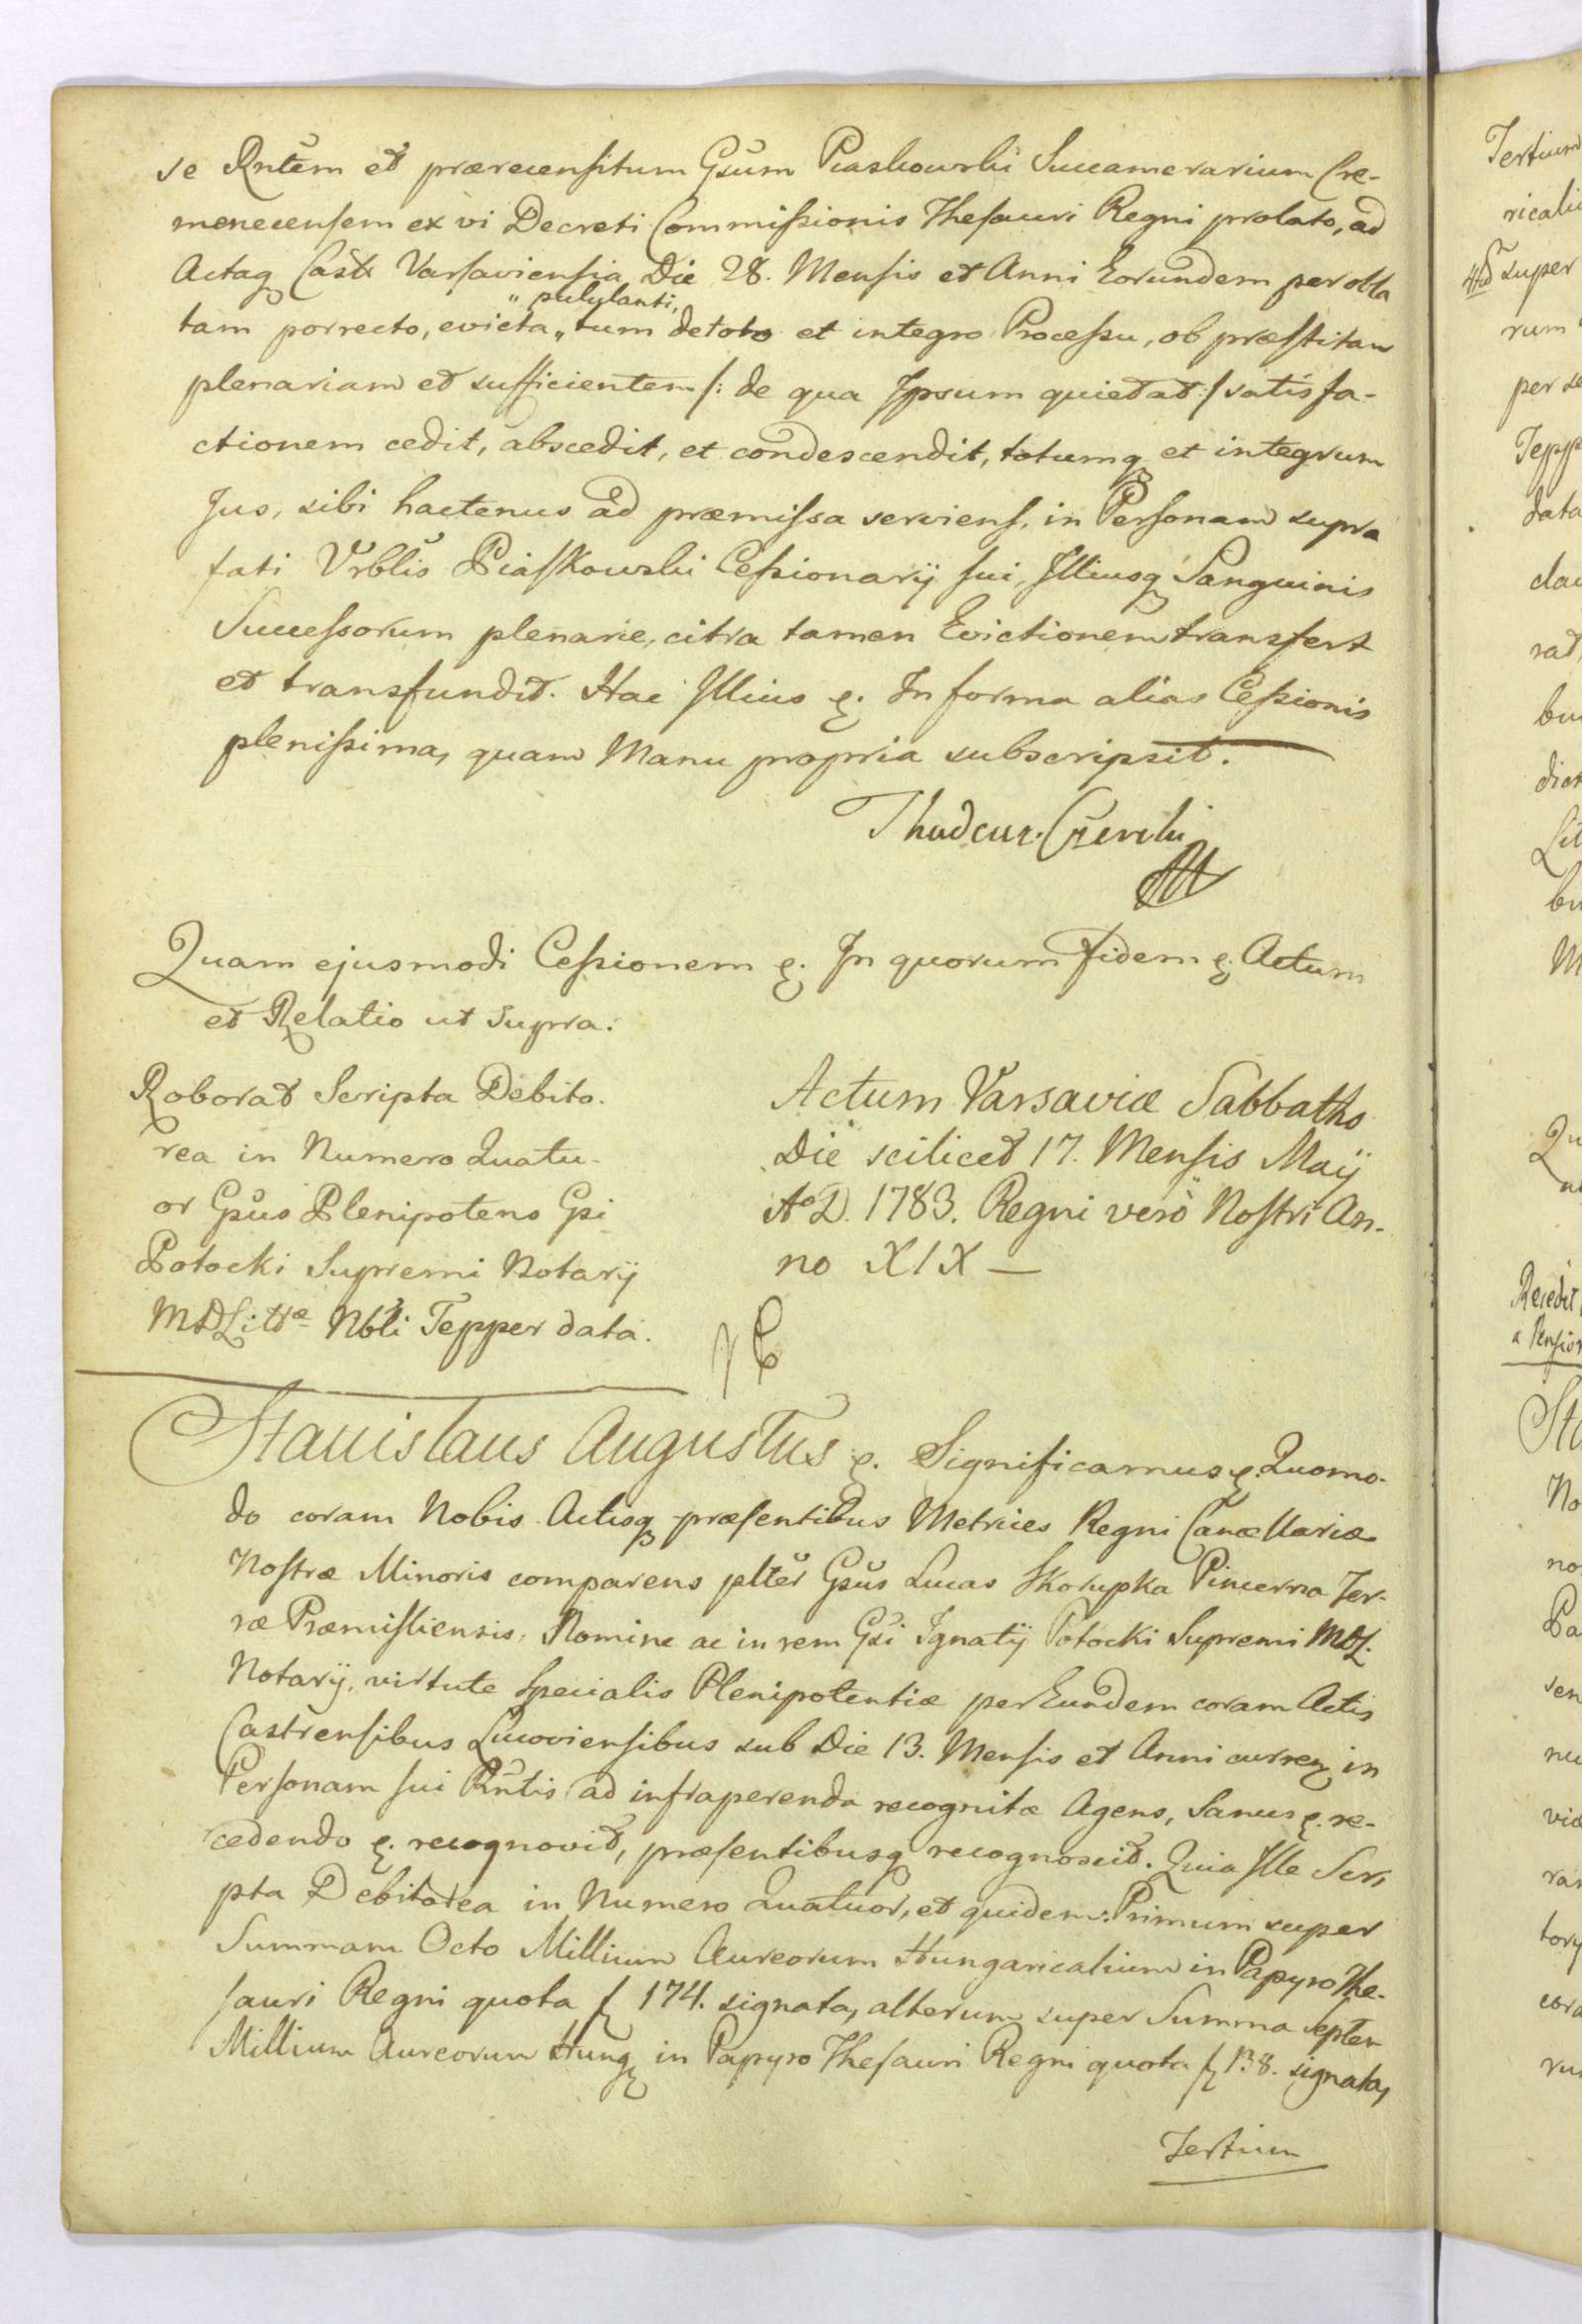 se Rntem et prærecensitum Gsum Piaskowski Succamerarium Cre-
menecensem ex vi Decreti Commissionis Thesauri Regni prolato, ad
Actaq Castr Varsaviensia Die 28. Mensis et Anni Eorundem per obla
" pulylanti,
tam porrecto, evicta „ tum de toto et integro Processu, ob præstitam
plenariam et sufficientem /: de qua Ipsum quietat :/ satisfa-
ctionem cedit, abscedit, et condescendit, totumq et integrum
Jus, sibi hactenus ad præmissa serviens, in Personam supra
fati Urblis Piaskowski Cessionarij sui, Illiusq Sanguinis
Successorum plenarie, citra tamen Evictionem transfert
et transfundit. Hac Illius ę. In forma alias Cessionis
plenissima, quam Manu propria subscripsit.
Quam ejusmodi Cessionem ę. In quorum Fidem ę. Actum
et Relatio ut supra.
Roborat Scripta Debito.
rea in Numero Quatu-
or Gsus Plenipotens Gsi
Potocki Supremi Notarij
MDLittæ Nbli Tepper data.
Actum Varsaviæ Sabbatho
Die scilicet 17. Mensis Maij
Aº D. 1783. Regni verò Nostri An-
no XIX —
Stanislaus Augustus ę. Significamus ę. Quomo-
do coram Nobis Actisq præsentibus Metrices Regni Cancellariæ
Nostræ Minoris comparens plter Gsus Lucas Skorupka Pincerna Ter-
ræ Præmisliensis, Nomine ac in rem Gsi Ignatij Potocki Supremi MDL.
Notarij, virtute Specialis Plenipotentiæ per Eundem coram Actis
Castrensibus Lucoviensibus sub Die 13. Mensis et Anni curren in
Personam sui Rntis ad infraperenda recognitæ Agens, Sanus ę. re-
cedendo ę. recognovit, præsentibusq recognoscit. Quia Ille Scri
pta Debitorea in Numero Quatuor, et quidem: Primum super
Summam Octo Millium Aureorum Hungaricalium in Papyro The-
sauri Regni quota f 174. signata, alterum super Summa Septem
Millium Aureorum Hung in Papyro Thesauri Regni quota f 138. signata,
Tertium